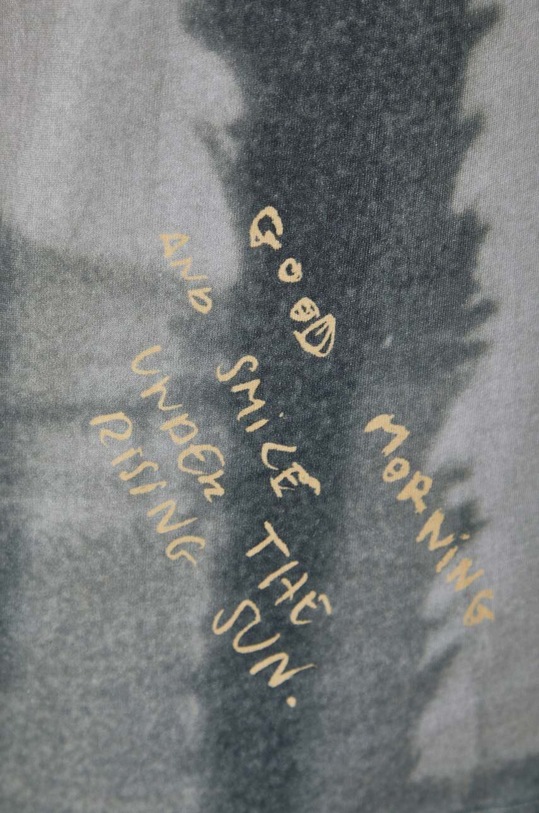 GOOD MORNING
AND SMILE THE
UNDER SUN.
RISING